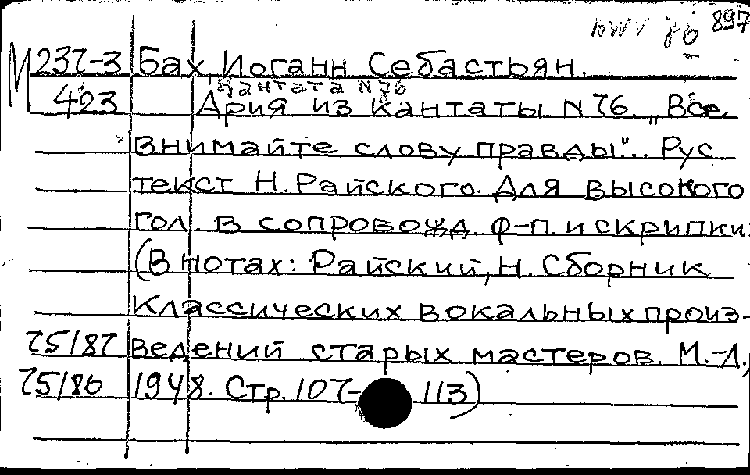 BWV 76 897
М 237-3 Бах Иоганн Себастьян.
Кантата N 76
423 Ария из кантаты N 76 „Все
внимайте слову правды". Рус
текст Н. Райского. Для высокого
гол. в сопровожд. ф-п. и скрипки.
(В нотах: Райский, Н. Сборник
классических вокальных произ-
75/87 ведений старых мастеров. М.-Л.,
75/86 1948. Стр. 107- 113)